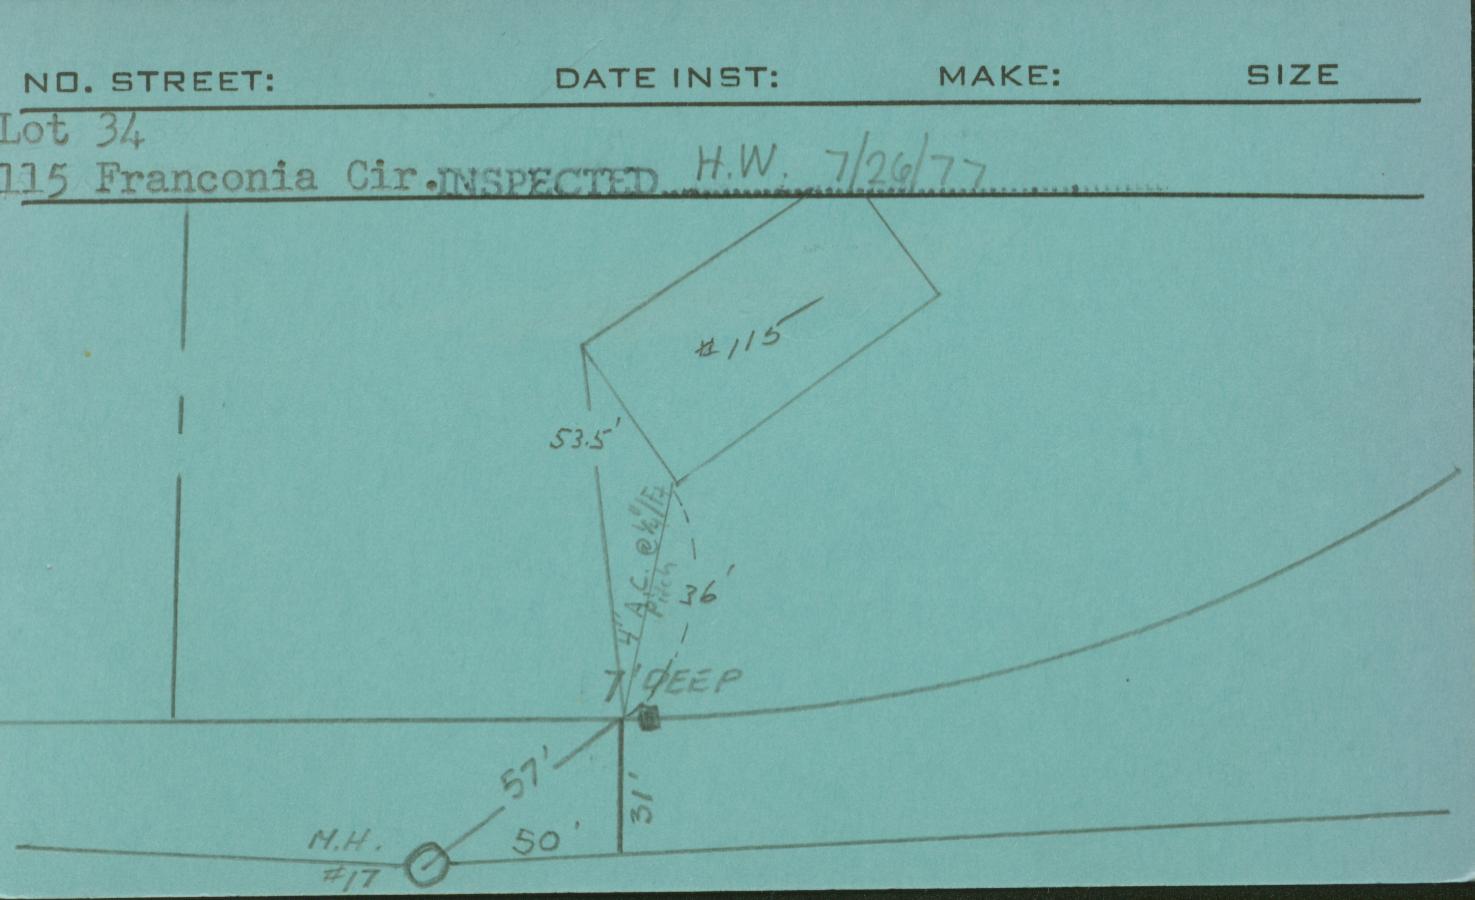 NO. STREET: DATE INST: MAKE: SIZE
Lot 34
115 Franconia Cir. INSPECTED H.W. 7/26/77
#115
53.5'
4" A.C. @ ⅛"/Ft
Pitch
36'
7' DEEP
57'
31'
50'
M.H.
#17